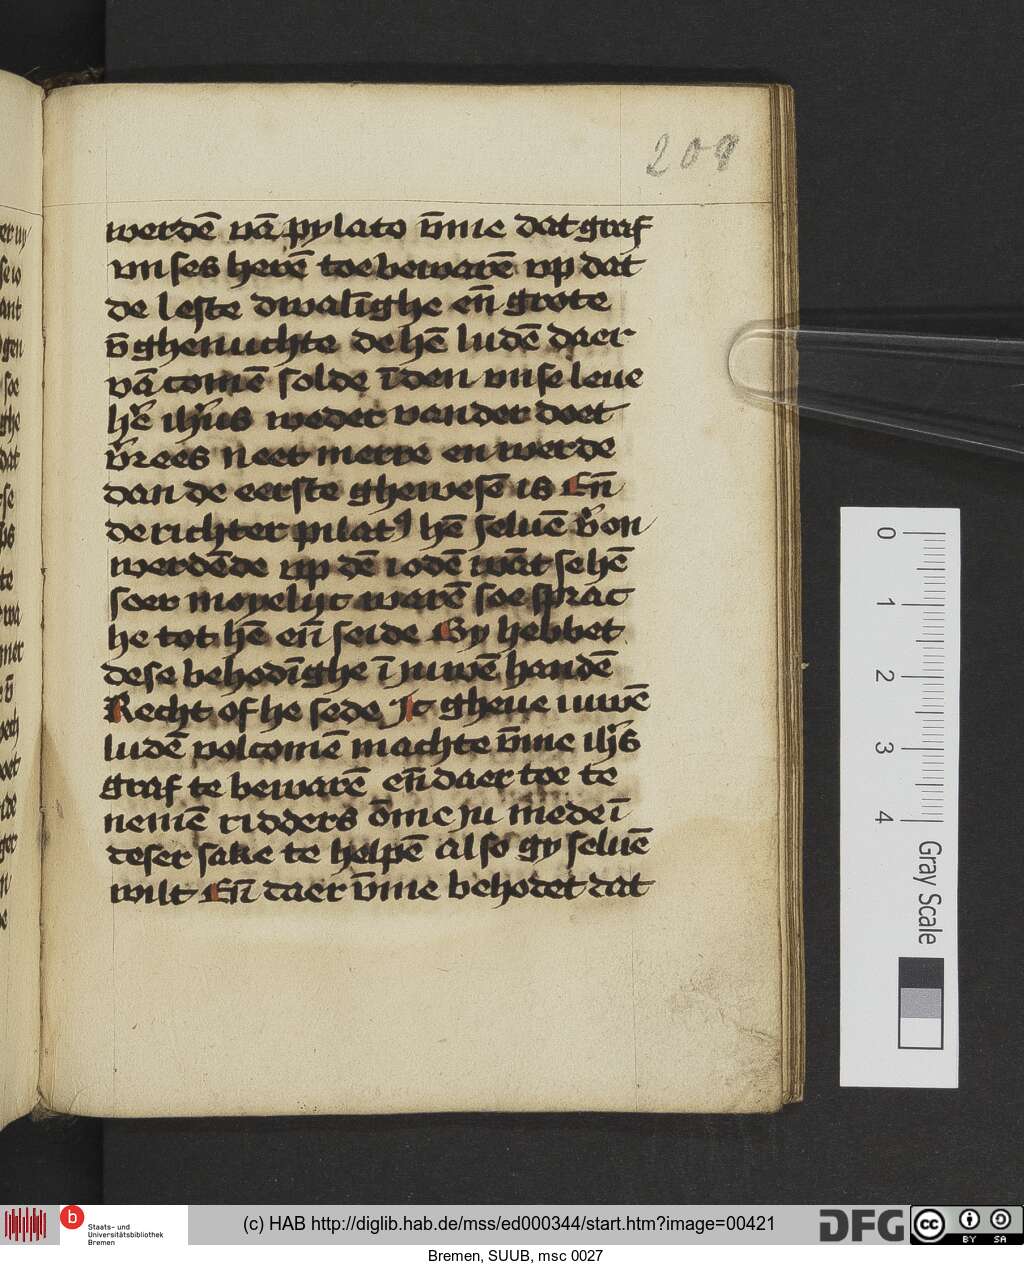 209
werdē vā pylato v̄me dat graf
vnses herē toe bewarē vp dat
de leste dwalīghe eñ grote
v̄ghenuchte de hē ludē daer
vā comē solde īden vnse leue
h̄e ih̄us weder van der doet
v̄rees neet merre en werde
dan de eerste ghewesē is Eñ
de richter pilatꝰ hē seluē v̄on
werdēde vp dē iodē wāt se hē
soer moyelijc warē soe sprac
he tot hē eñ seide Gy hebbet
dese behodīghe ī juwē handē
Recht of he sede Jc gheue iuwē
ludē volcomē machte v̄me ih̄s
graf te bewarē eñ daer toe te
nemē ridders ōme ju mede ī
deser sake te helpē also gy seluē
wilt Eñ daer v̄me behodet dat
0
1
2
3
4
Gray Scale
b
Staats- und
Universitätsbibliothek
Bremen
(c) HAB http://diglib.hab.de/mss/ed000344/start.htm?image=00421
DFG
cc
BY SA
Bremen, SUUB, msc 0027